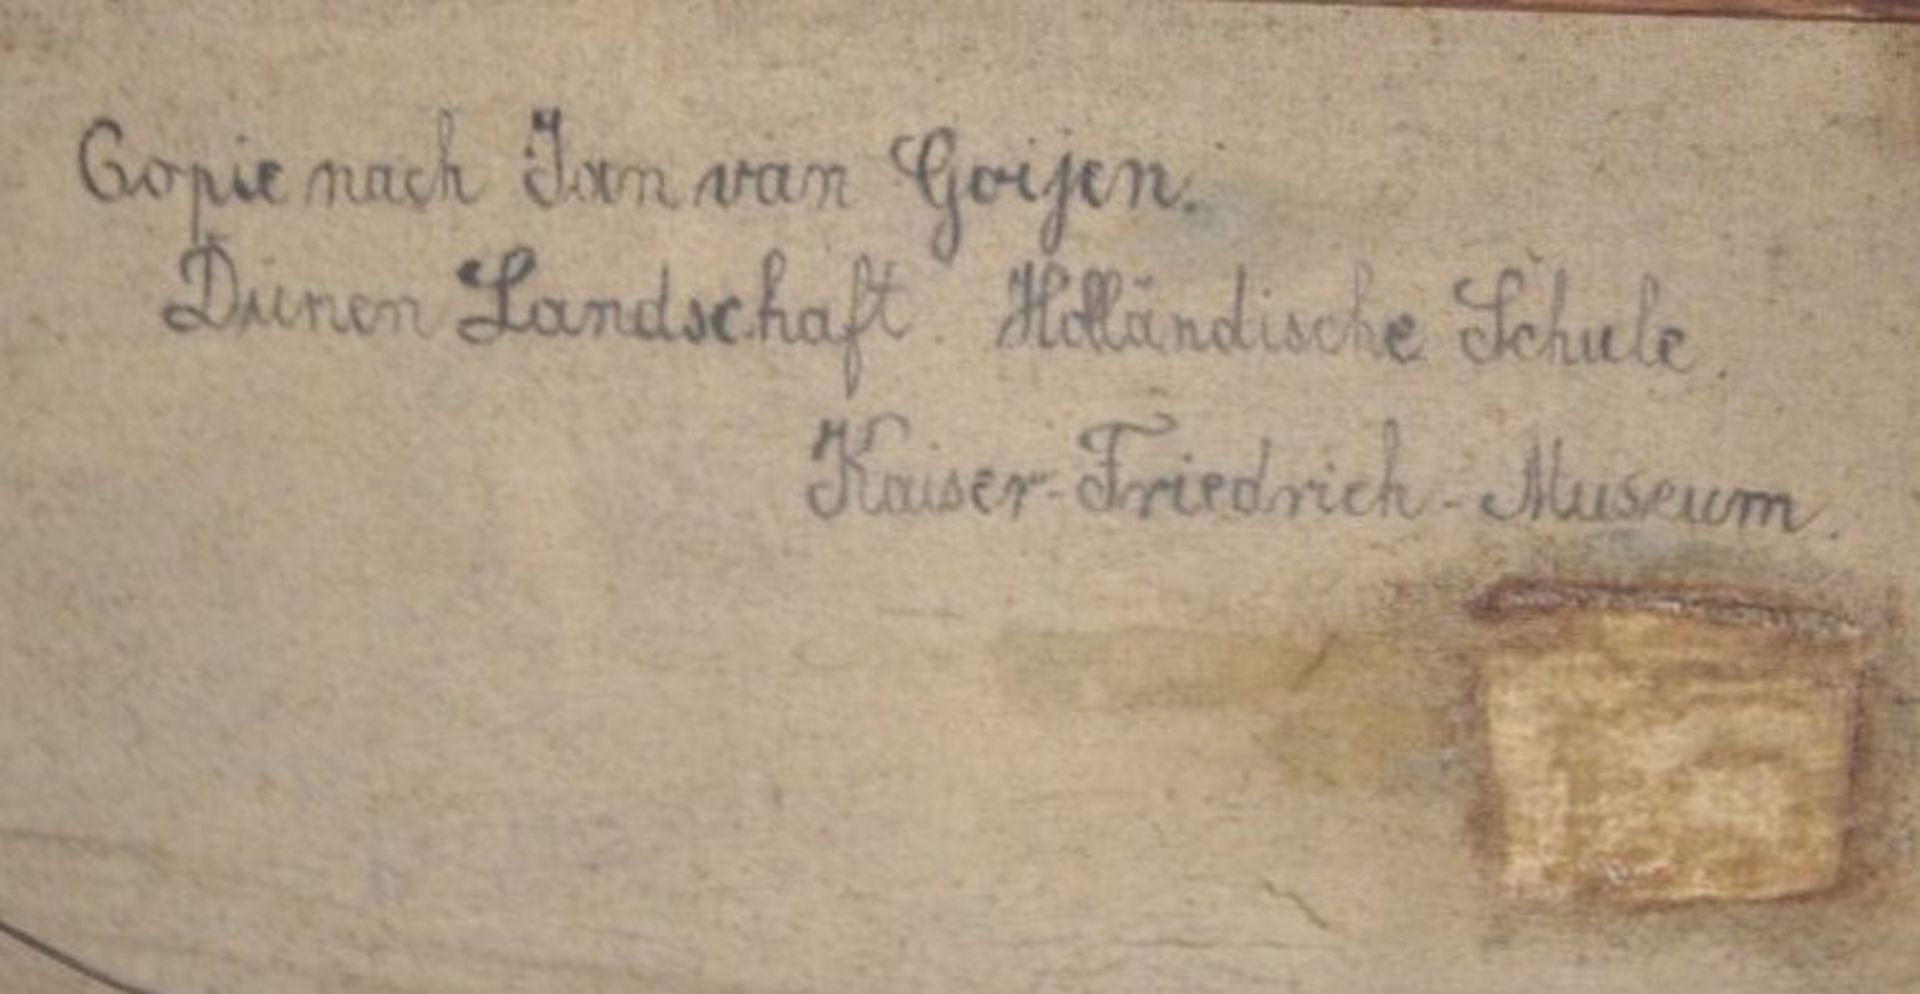 Copie nach Jan van Goijen.
Dünen Landschaft. Holländische Schule.
Kaiser-Friedrich-Museum.